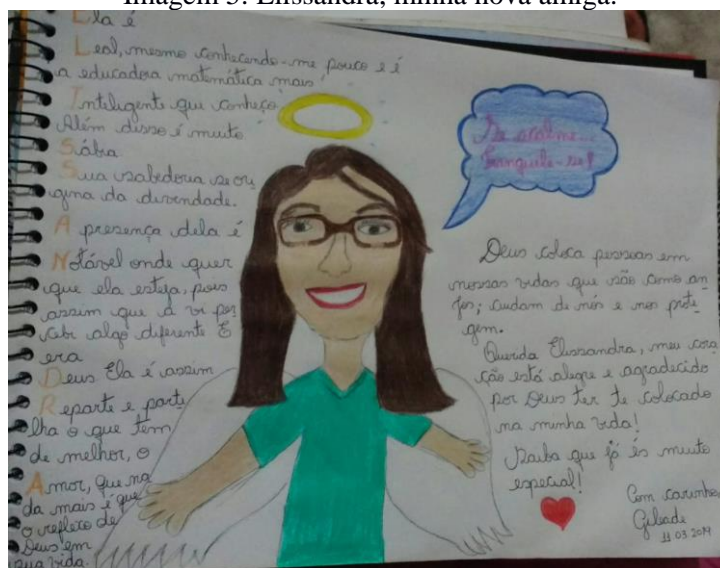 Imagem 5: Elissandra, minha nova amiga.
Ela é
Leal, mesmo conhecendo-me pouco e é
a educadora matemática mais
Inteligente que conheço
Além disso é muito
Sábia.
Sua sabedoria se ori
gina da divindade.
A presença dela é
Notável onde quer
que ela esteja, pois
assim que a vi per
cebi algo diferente E
era
Deus Ela é assim
Reparte e parti
lha o que tem
de melhor, o
Amor, que na
da mais é que
o reflexo de
Deus em
sua vida.
Se acalme...
Tranquile-se!
Deus coloca pessoas em
nossas vidas que são como an
jos; cuidam de nós e nos prote
gem.
Querida Elissandra, meu cora
ção está alegre e agradecido
por Deus ter te colocado
na minha vida!
Saiba que já és muito
especial!
Com carinho
Gileade
11.03.2014